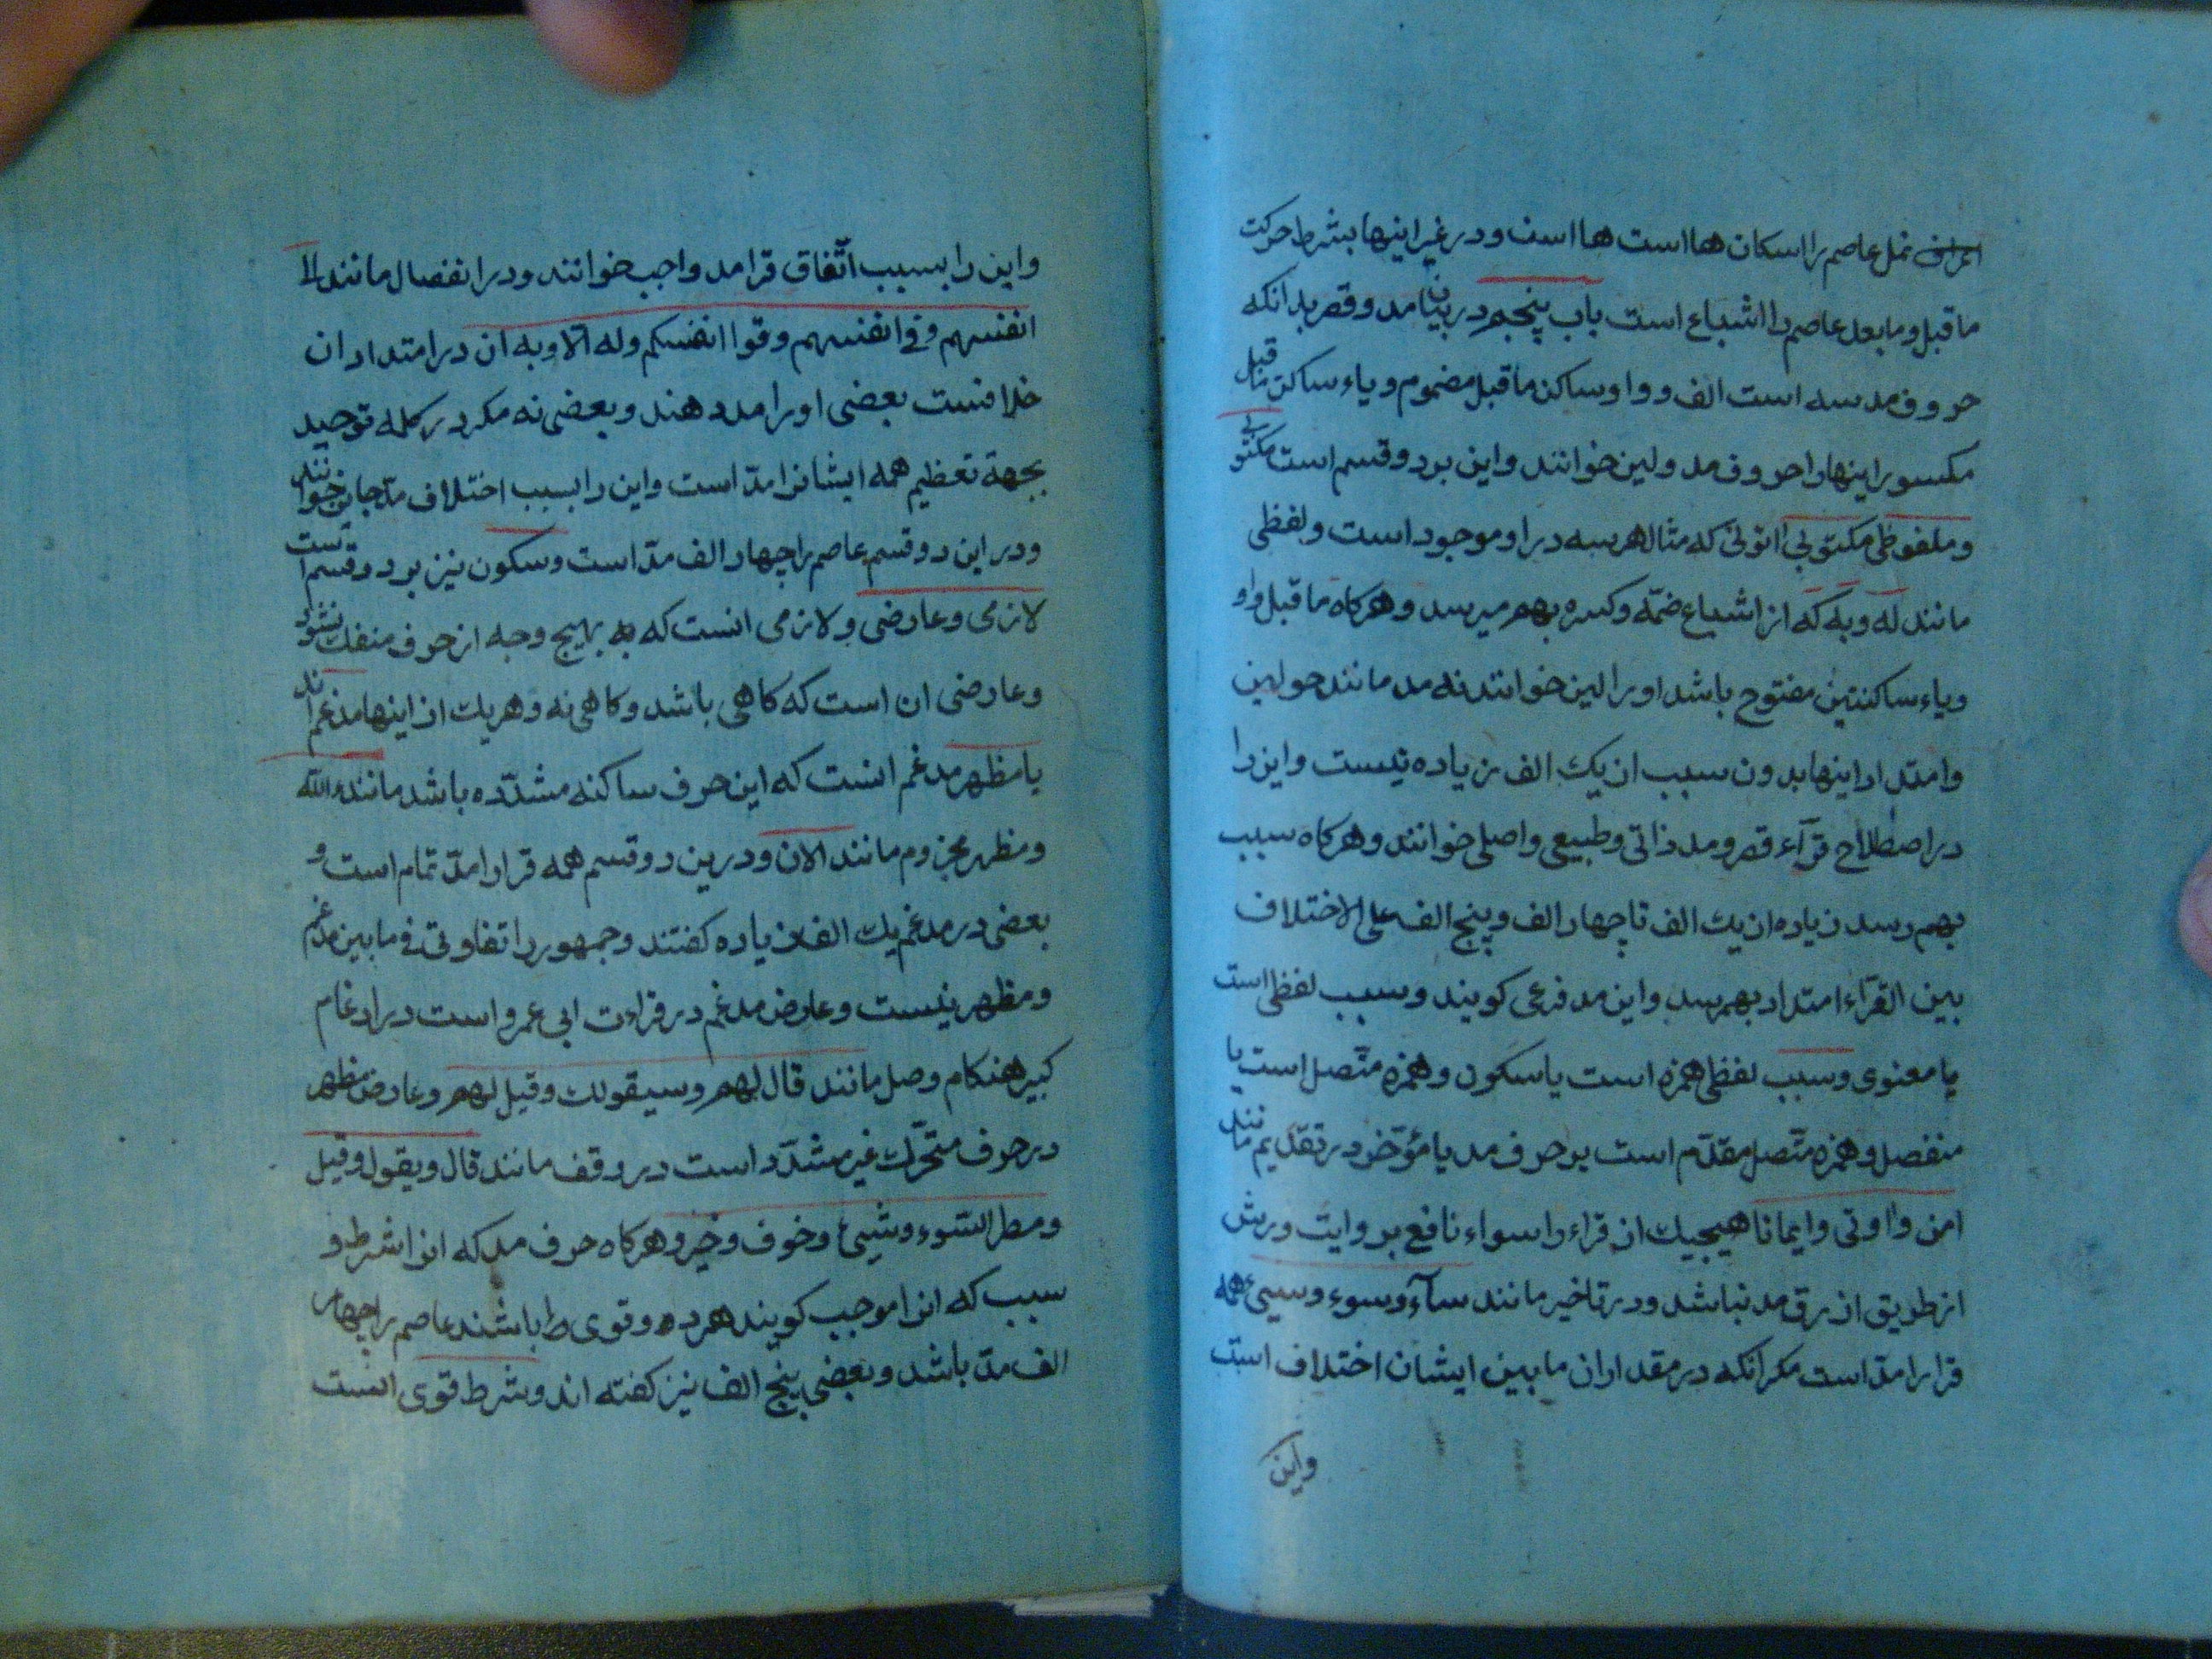 نمل عاصم را اسکان ها است ها است ودر غیر اینها بشرط حرکت
ما قبل وما بعد عاصم را اشباع است باب پنجم در بیان مد وقصر بدانکه
حروف مد سه است الف وواو ساکن ما قبل مضموم ویاء ساکن ما قبل
مکسور اینها را حروف مد ولین خوانند واین بر دو قسم است مکتوبی
وملفوظی مکتوبی اتونی که مثال هر سه در او موجود است ولفظی
مانند له وبه که از اشباع ضمّه وکسره بهم میرسد وهرکاه ما قبل واو
ویاء ساکنتین مفتوح باشد او را لین خوانند نه مد مانند حولین
وامتداد اینها بدون سبب از یک الف زیاده نیست واین را
در اصطلاح قرآء قصر ومد ذاتی وطبیعی واصلی خوانند وهرکاه سبب
بهم رسد زیاده از یک الف تا چهار الف وپنج الف علی الاختلاف
بین القرآء امتداد بهمرسد واین مد فرعی کویند وسبب لفظی است
یا معنوی وسبب لفظی همزه است یا سکون وهمزه متّصل است یا
منفصل وهمزه متّصل مقدّم است بر حرف مد یا مؤخّر در تقدیم مانند
امن واوتی وایمانا هیچیک از قراء را سواء نافع بروایت ورش
از طریق ازرق مد نباشد ودر تاخیر مانند سآء وسوء وسیئ همه
قرا را مدّ است مکر انکه در مقدار ان ما بین ایشان اختلاف است
واین
واین را بسبب اتّفاق قرا مد واجب خوانند ودر انفصال مانند لا
انفسهم وفی انفسهم وقوا انفسکم وله الا وبه ان در امتداد ان
خلافست بعضی او را مد دهند وبعضی نه مکر در کلمه توحید
بجهة تعظیم همه ایشانرا مدّ است واین را بسبب اختلاف مدّ جایز خوانند
ودر این دو قسم عاصم را چهار الف مدّ است وسکون نیز بر دو قسم است
لازمی وعارضی ولازمی انست که به بهیج وجه از حرف منفک نشود
وعارضی ان است که کاهی باشد وکاهی نه وهر یک از اینها مدغم اند
یا مظهر مدغم انست که این حرف ساکنه مشدّده باشد مانند ءالله
ومظهر مجزوم مانند الان ودرین دو قسم همه قرا را مدّ تمام است و
بعضی در مدغم یک الف زیاده کفتند وجمهور را تفاوتی فی ما بین مدغم
ومظهر نیست وعارض مدغم در قراءت ابی عمرو است در ادغام
کبیر هنکام وصل مانند قال لهم وسیقول لک وقیل لهم وعارض مظهر
در حرف متحرّک غیر مشدّد است در وقف مانند قال ویقول وقیل
ومطر السّوء وشیئ وخوف وخیر وهرکاه حرف مد که انرا شرط و
سبب که انرا موجب کویند هر دو قوی باشند عاصم را چهار
الف مدّ باشد وبعضی پنج الف نیز کفته اند وشرط قوی انست